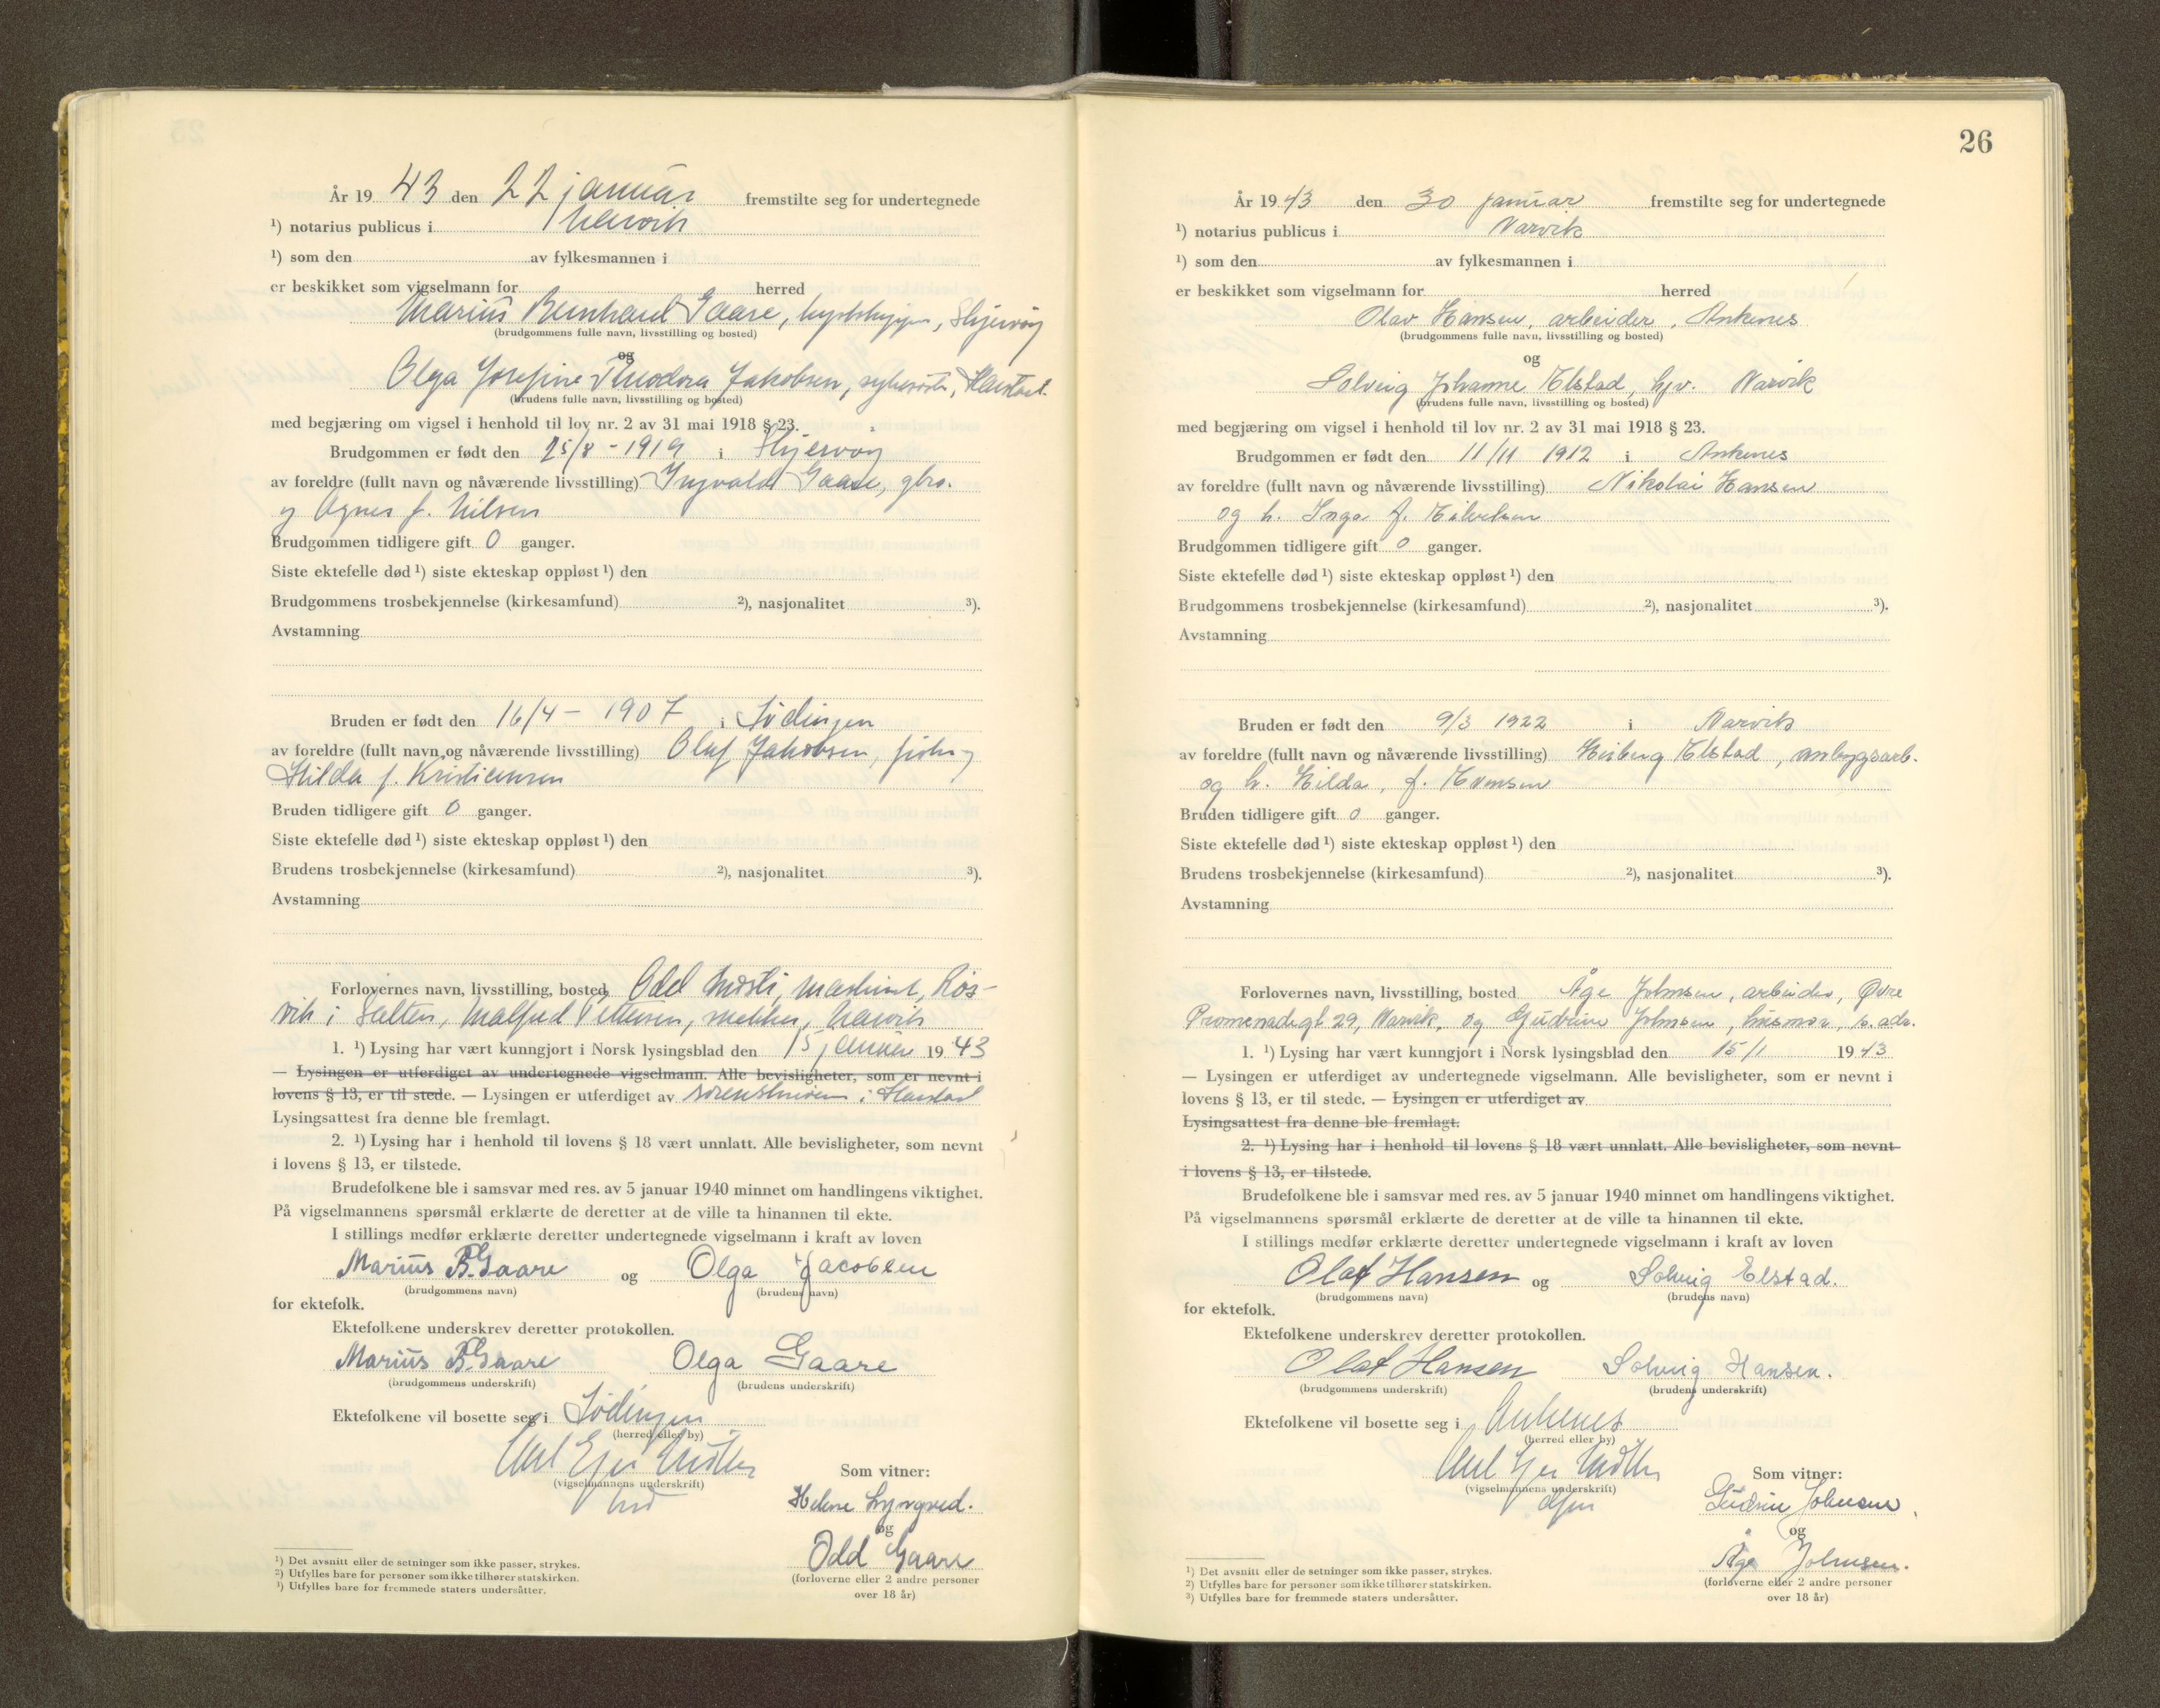 År 1943 den 22 januar fremstilte seg for undertegnede
¹) notarius publicus i Narvik
¹) som den av fylkesmannen i
er beskikket som vigselmann for herred
Marius Bernhard Gaare, Skjervøy
(brudgommens fulle navn, livsstilling og bosted)
og
Olga Josefine Theodora Jakobsen, Harstad.
(brudens fulle navn, livsstilling og bosted)
med begjæring om vigsel i henhold til lov nr. 2 av 31 mai 1918 § 23.
Brudgommen er født den 25/8 - 1919 i Skjervøy
av foreldre (fullt navn og nåværende livsstilling) Ingvald Gaare, gbr.
og Agnes f. Nilsen
Brudgommen tidligere gift 0 ganger.
Siste ektefelle død ¹) siste ekteskap oppløst ¹) den
Brudgommens trosbekjennelse (kirkesamfund) ²), nasjonalitet ³).
Avstamning
Bruden er født den 16/4 - 1907 i Lødingen
av foreldre (fullt navn og nåværende livsstilling) Olaf Jakobsen, fisker og
Hilda f. Kristiansen
Bruden tidligere gift 0 ganger.
Siste ektefelle død ¹) siste ekteskap oppløst ¹) den
Brudens trosbekjennelse (kirkesamfund) ²), nasjonalitet ³).
Avstamning
Forlovernes navn, livsstilling, bosted Odd maskinist, Røs-
vik i Salten, Malfred Pettersen, Narvik
1. ¹) Lysing har vært kunngjort i Norsk lysingsblad den 15 januar 1943
— Lysingen er utferdiget av undertegnede vigselmann. Alle bevisligheter, som er nevnt i
lovens § 13, er til stede. — Lysingen er utferdiget av sorenskriveren i Harstad
Lysingsattest fra denne ble fremlagt.
2. ¹) Lysing har i henhold til lovens § 18 vært unnlatt. Alle bevisligheter, som nevnt
i lovens § 13, er tilstede.
Brudefolkene ble i samsvar med res. av 5 januar 1940 minnet om handlingens viktighet.
På vigselmannens spørsmål erklærte de deretter at de ville ta hinannen til ekte.
I stillings medfør erklærte deretter undertegnede vigselmann i kraft av loven
Marius B. Gaare og Olga Jacobsen
(brudgommens navn) (brudens navn)
for ektefolk.
Ektefolkene underskrev deretter protokollen.
Marius B. Gaare Olga Gaare
(brudgommens underskrift) (brudens underskrift)
Ektefolkene vil bosette seg i Lødingen
(herred eller by)
(vigselmannens underskrift)
Som vitner:
Helene Lyngved.
og
Odd Gaare
(forloverne eller 2 andre personer
over 18 år)
¹) Det avsnitt eller de setninger som ikke passer, strykes.
²) Utfylles bare for personer som ikke tilhører statskirken.
³) Utfylles bare for fremmede staters undersåtter.
26
År 1943 den 30 januar fremstilte seg for undertegnede
¹) notarius publicus i Narvik
¹) som den av fylkesmannen i
er beskikket som vigselmann for herred
Olav Hansen, arbeider, Ankenes
(brudgommens fulle navn, livsstilling og bosted)
og
Solveig Johanne Elstad, hjv. Narvik
(brudens fulle navn, livsstilling og bosted)
med begjæring om vigsel i henhold til lov nr. 2 av 31 mai 1918 § 23.
Brudgommen er født den 11/11 1912 i Ankenes
av foreldre (fullt navn og nåværende livsstilling) Nikolai Hansen
og h. Inga f.
Brudgommen tidligere gift 0 ganger.
Siste ektefelle død ¹) siste ekteskap oppløst ¹) den
Brudgommens trosbekjennelse (kirkesamfund) ²), nasjonalitet ³).
Avstamning
Bruden er født den 9/3 1922 i Narvik
av foreldre (fullt navn og nåværende livsstilling) Heiberg Elstad, anleggsarb.
og h. Hilda, f.
Bruden tidligere gift 0 ganger.
Siste ektefelle død ¹) siste ekteskap oppløst ¹) den
Brudens trosbekjennelse (kirkesamfund) ²), nasjonalitet ³).
Avstamning
Forlovernes navn, livsstilling, bosted Åge Johnsen, arbeider, Øvre
Promenadegt 29, Narvik, og Gudrun Johnsen, husmor, s. adr.
1. ¹) Lysing har vært kunngjort i Norsk lysingsblad den 15/1 1943
— Lysingen er utferdiget av undertegnede vigselmann. Alle bevisligheter, som er nevnt i
lovens § 13, er til stede. — Lysingen er utferdiget av
Lysingsattest fra denne ble fremlagt.
2. ¹) Lysing har i henhold til lovens § 18 vært unnlatt. Alle bevisligheter, som nevnt
i lovens § 13, er tilstede.
Brudefolkene ble i samsvar med res. av 5 januar 1940 minnet om handlingens viktighet.
På vigselmannens spørsmål erklærte de deretter at de ville ta hinannen til ekte.
I stillings medfør erklærte deretter undertegnede vigselmann i kraft av loven
Olaf Hansen og Solveig Elstad.
(brudgommens navn) (brudens navn)
for ektefolk.
Ektefolkene underskrev deretter protokollen.
Olaf Hansen Solveig Hansen.
(brudgommens underskrift) (brudens underskrift)
Ektefolkene vil bosette seg i Ankenes
(herred eller by)
(vigselmannens underskrift)
Som vitner:
Gudrun Johnsen
og
Åge Johnsen.
(forloverne eller 2 andre personer
over 18 år)
¹) Det avsnitt eller de setninger som ikke passer, strykes.
²) Utfylles bare for personer som ikke tilhører statskirken.
³) Utfylles bare for fremmede staters undersåtter.